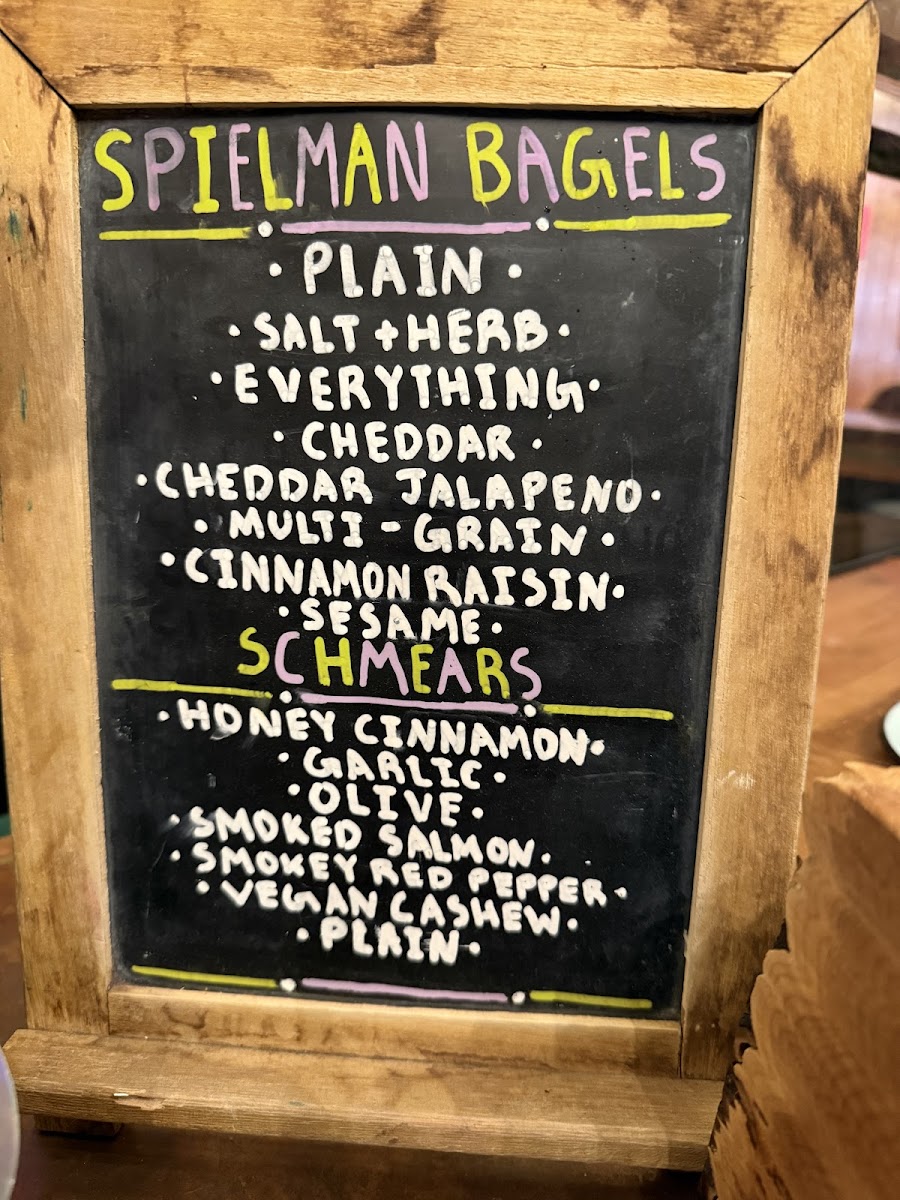 SPIELMAN BAGELS
· PLAIN ·
· SALT + HERB ·
· EVERYTHING ·
· CHEDDAR ·
· CHEDDAR JALAPENO ·
· MULTI - GRAIN ·
· CINNAMON RAISIN ·
· SESAME ·
SCHMEARS
· HONEY CINNAMON ·
· GARLIC ·
· OLIVE ·
· SMOKED SALMON ·
· SMOKEY RED PEPPER ·
· VEGAN CASHEW ·
· PLAIN ·